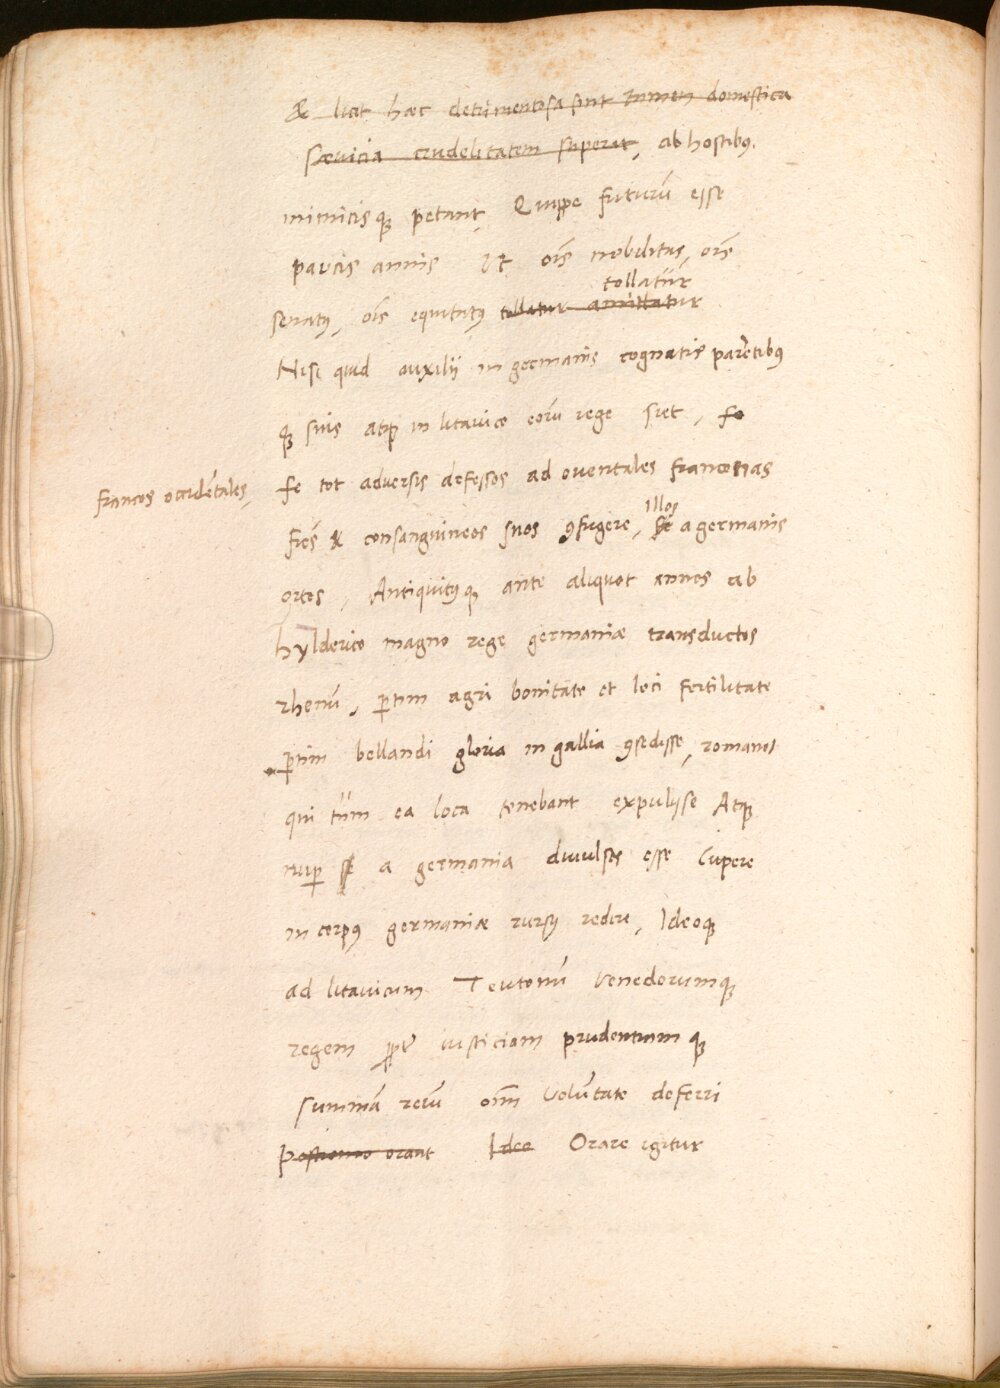 & licet hæc detrimentosa sint tamen domestica
sævicia crudelitatem superet, ab hostibꝰ.
inimicisqꝫ petant, Quippe futurū esse
paucis annis Ut oīs nobilitas, oīs
tollatur
senatꝰ, oīs equitatꝰ tollatur amittatur
Nisi quid auxilij in germanis cognatis parētibꝰ
qꝫ suis atqꝫ in litavico eorū rege siet, se
francos occidētales,
se tot adversis defessos ad orientales francones
Illos
frēs & consanguineos suos ꝯfugere, se a germanis
ortos, Antiquitꝰqꝫ ante aliquot annos ab
hylderico magno rege germaniæ transductos
rhenū, ꝑtim agri bonitate et loci fertilitate
ꝑtim bellandi gloria in gallia ꝯsedisse, romanos
qui tūm ea loca tenebant expulisse Atqꝫ
nuꝑ a germania divulsos esse Cupere
in corpꝰ germaniæ rursꝰ redire, Ideoqꝫ
ad litavicum Teutonū Venedorumqꝫ
regem ꝓpter iusticiam prudentiam qꝫ
summā rerū oīm Volūtate deferri
Postremo orant Ideo Orare igitur